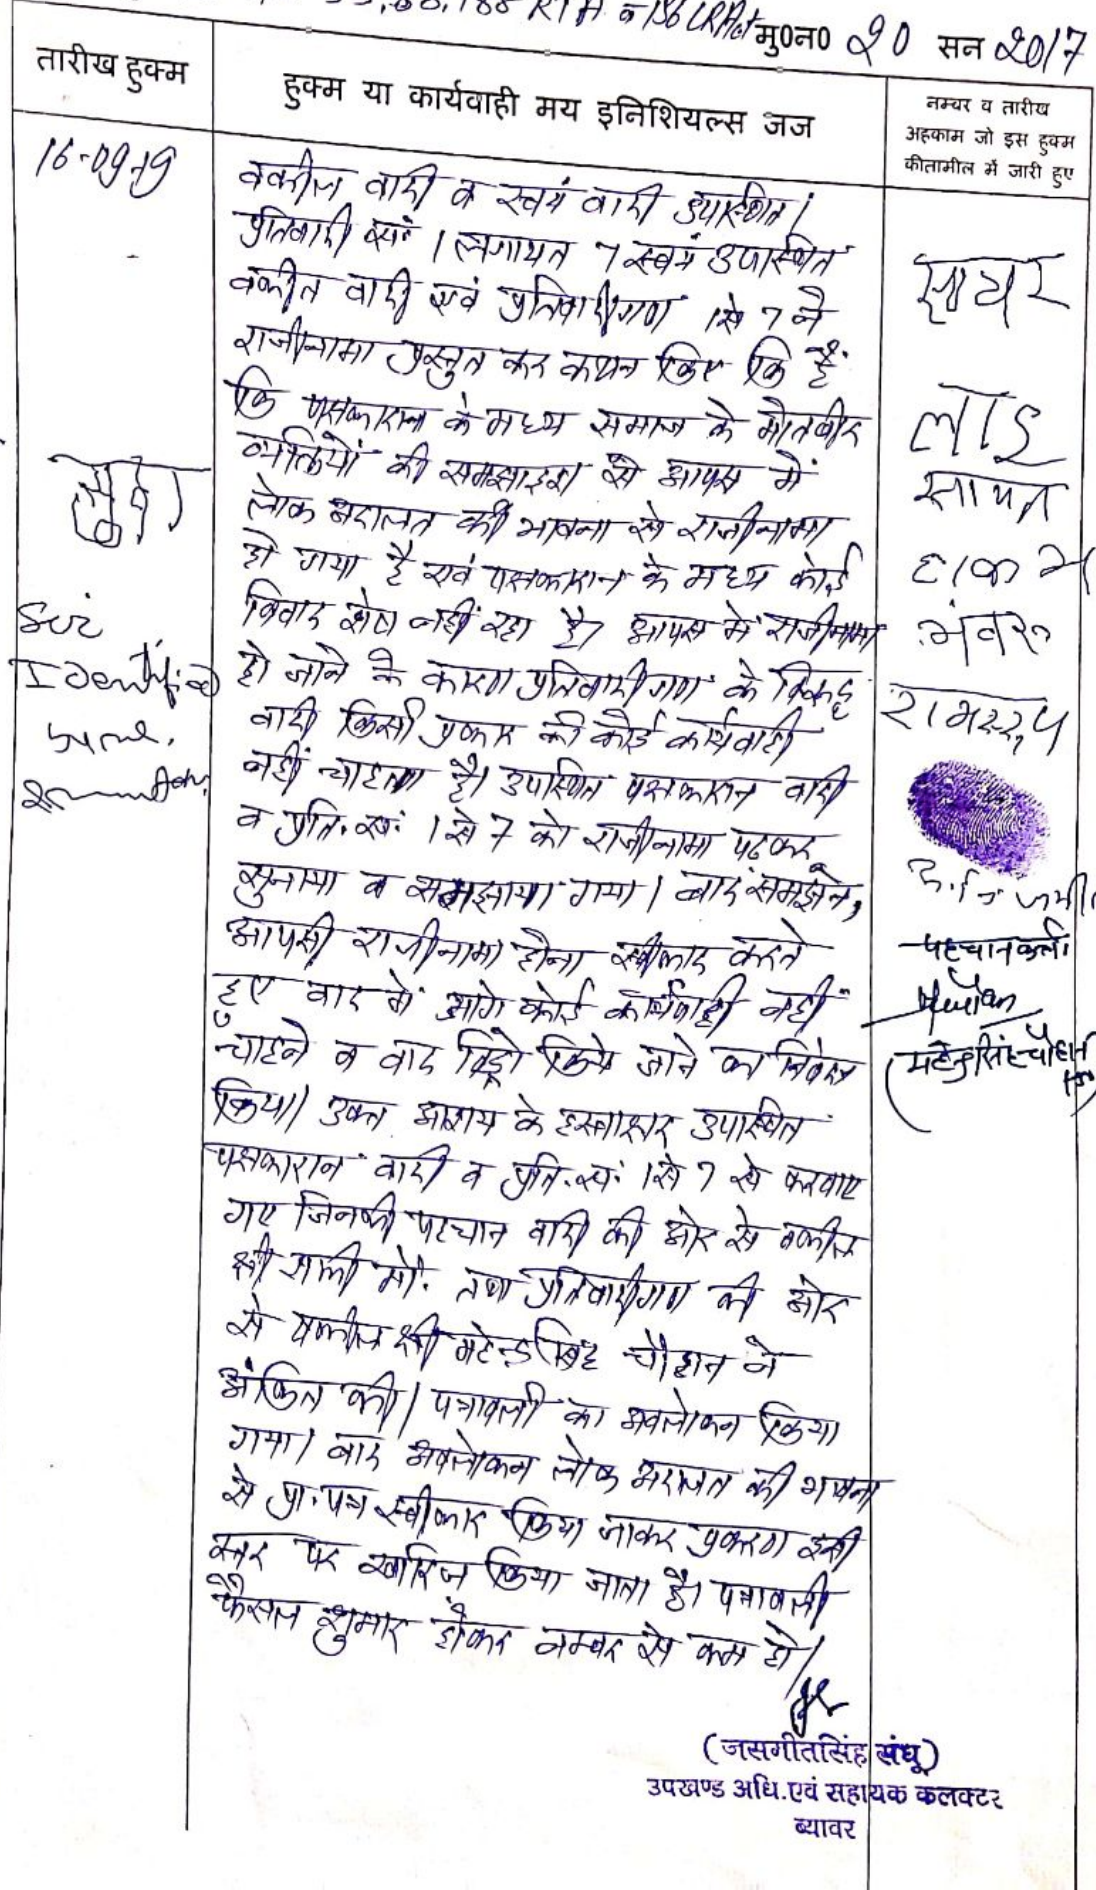 188 RTA व 136 LR Act मु0न0 20 सन 2017
तारीख हुक्म
हुक्म या कार्यवाही मय इनिशियल्स जज
नम्बर व तारीख
अहकाम जो इस हुक्म
कीतामील में जारी हुए
16-09-19
वकील वादी व स्वयं वादी उपस्थित।
प्रतिवादी सं: 1 लगायत 7 स्वयं उपस्थित
वकील वादी एवं प्रतिवादीगण 1 से 7 ने
राजीनामा प्रस्तुत कर कथन किए कि हैं
कि पक्षकारान के मध्य समाज के मौतबीर
व्यक्तियों की समझाइश से आपस में
लोक अदालत की भावना से राजीनामा
हो गया है एवं पक्षकारान के मध्य कोई
विवाद शेष नहीं रहा है। आपस में राजीनामा
हो जाने के कारण प्रतिवादीगण के विरूद्ध
वादी किसी प्रकार की कोई कार्यवाही
नहीं चाहता है। उपस्थित पक्षकारान वादी
व प्रति.सं: 1 से 7 को राजीनामा पढ़कर
सुनाया व समझाया गया। बाद समझने,
आपसी राजीनामा होना स्वीकार करते
हुए वाद में आगे कोई कार्यवाही नहीं
चाहने व वाद विड्रो किये जाने का निवेदन
किया। उक्त आशय के हस्ताक्षर उपस्थित
पक्षकारान वादी व प्रति.सं: 1 से 7 से करवाए
गए जिनकी पहचान वादी की ओर से वकील
श्री मो. तथा प्रतिवादीगण की ओर
से वकील श्री महेन्द्र सिंह चौहान ने
अंकित की। पत्रावली का अवलोकन किया
गया। बाद अवलोकन लोक अदालत की भावना
से प्रा.पत्र स्वीकार किया जाकर प्रकरण इसी
स्तर पर खारिज किया जाता है। पत्रावली
फैसल शुमार होकर नम्बर से कम हो।
Sir
Identified
लाड
भंवरू
रामस्रूप
पहचानकर्ता
(महेन्द्रसिंह चौहान
(जसगीतसिंह संधू)
उपखण्ड अधि.एवं सहायक कलक्टर
ब्यावर